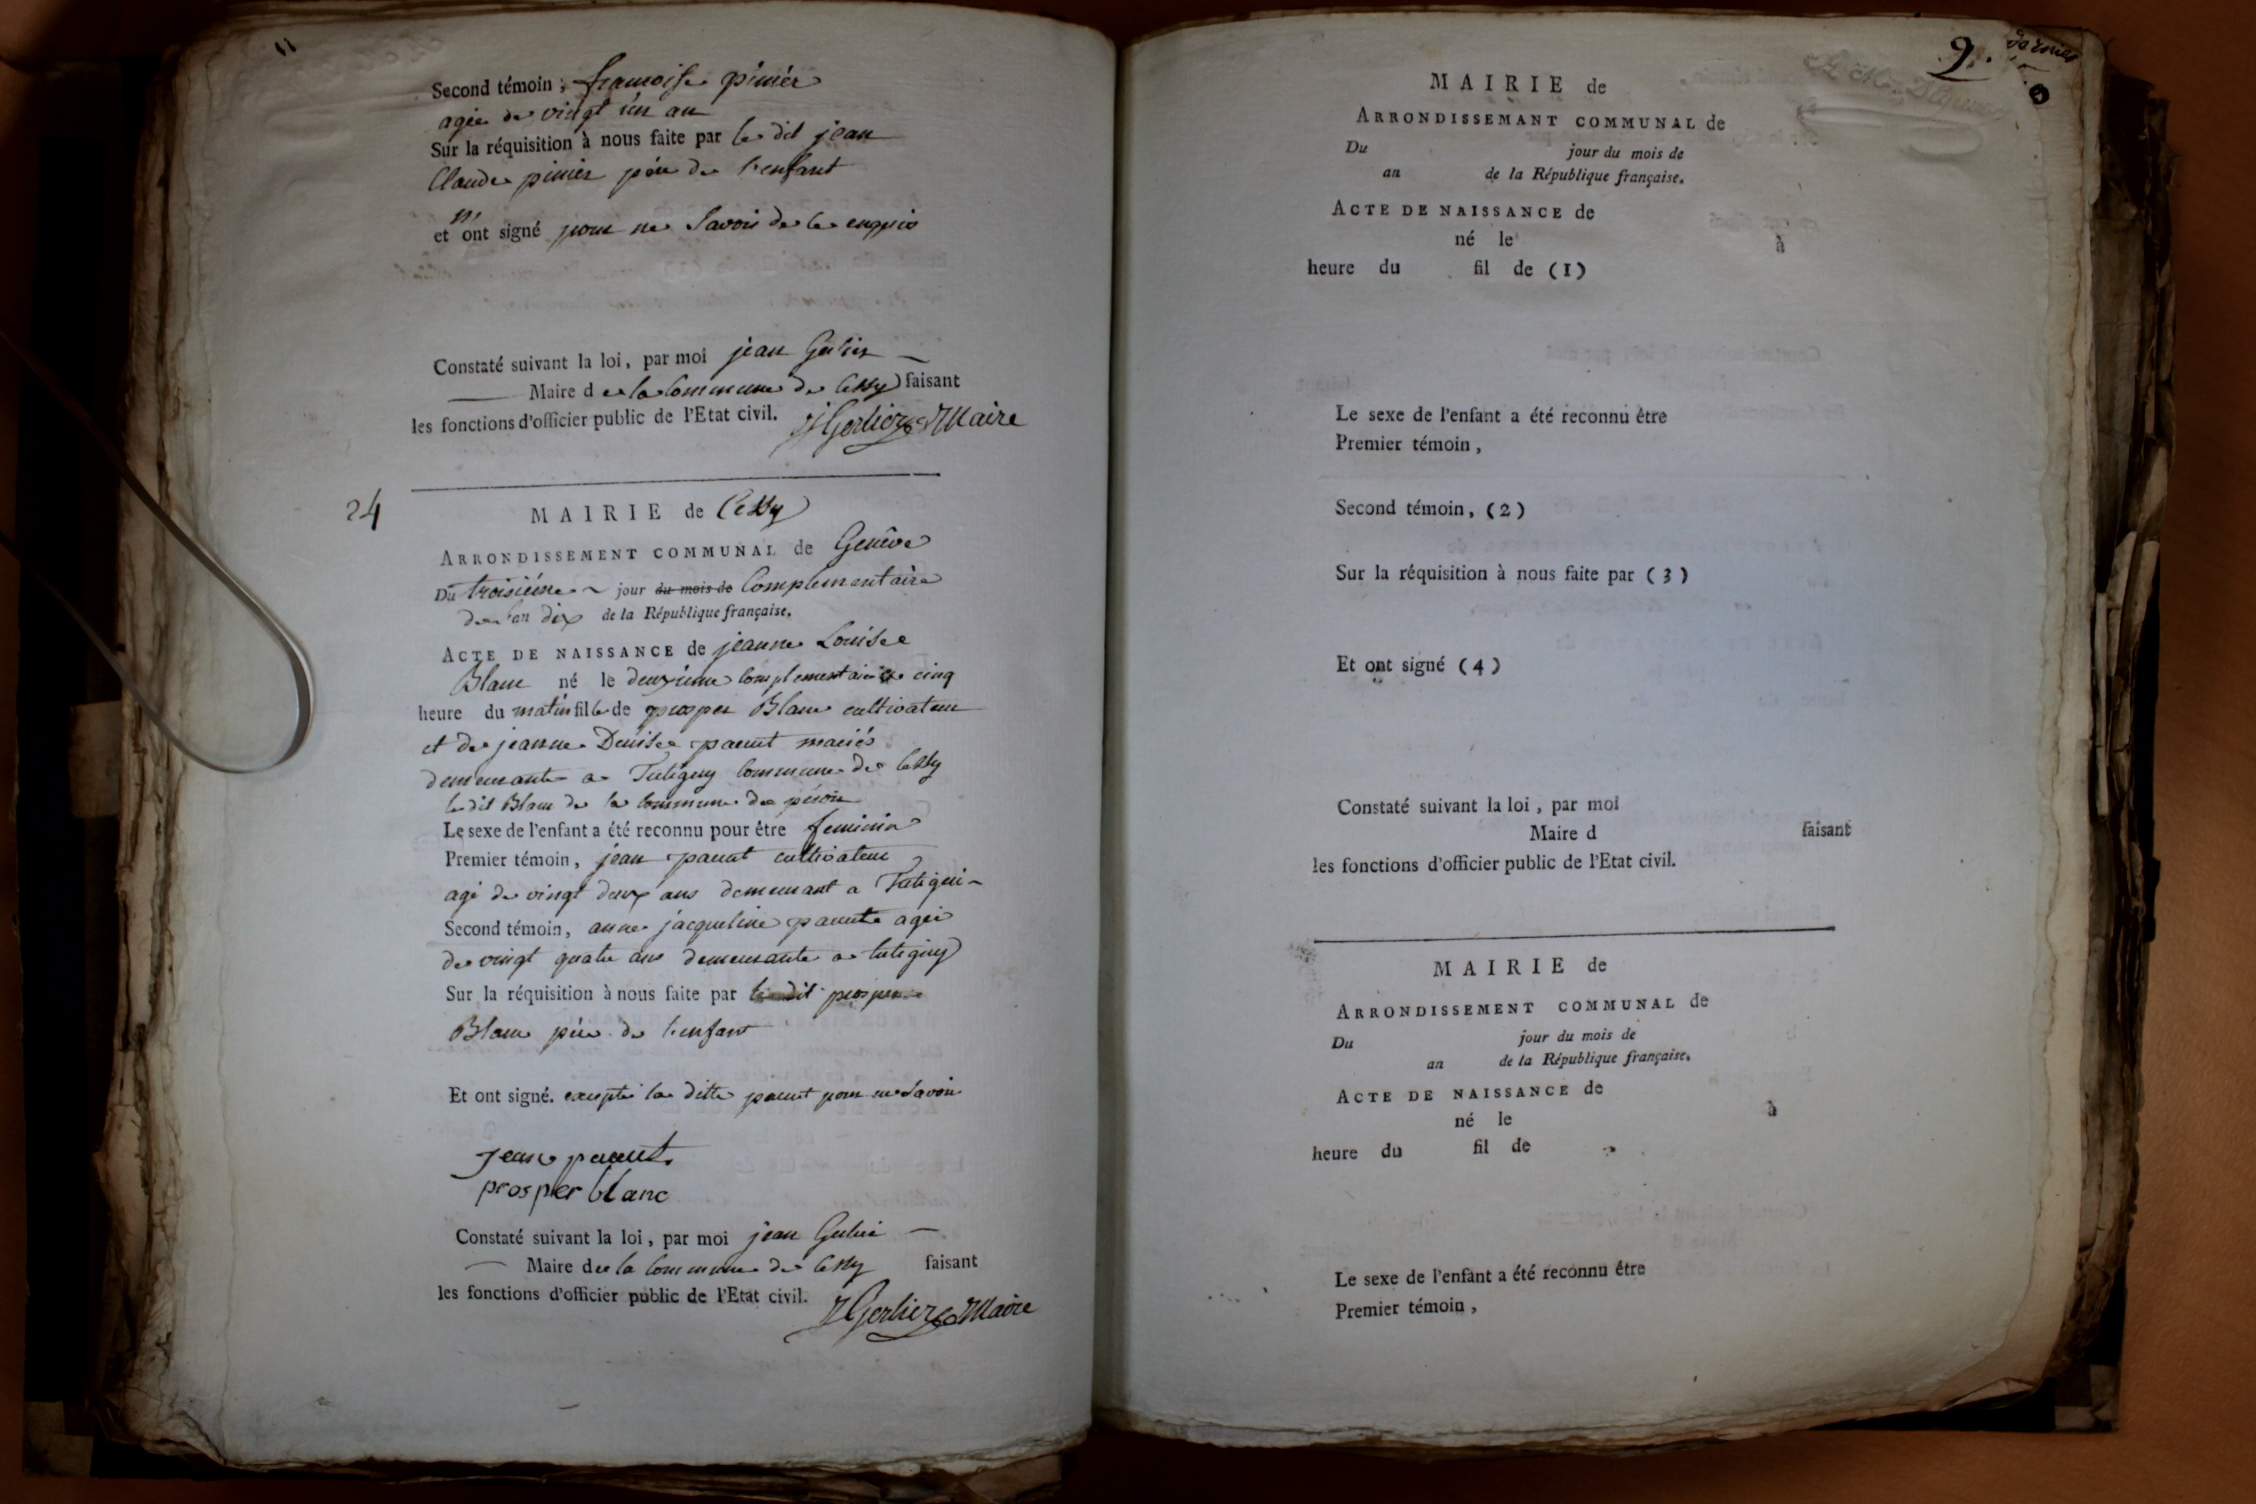 Second témoin, francoise pinier
agée de vingt un an
Sur la réquisition à nous faite par le dit jean
Claude pinier pére de l'enfant
n'
et ont signé pour ne Savoir de ce enquis
Constaté suivant la loi, par moi jean Gerlier
Maire de la Commune de Cessy faisant
les fonctions d'officier public de l'Etat civil. J Gerlier Maire
24
MAIRIE de Cessy
ARRONDISSEMENT COMMUNAL de Genêve
Du troisiéme jour du mois de Complementaire
de l'an dix de la République française.
ACTE DE NAISSANCE de jeanne Louise
Blanc né le deuxiéme complementaire a cinq
heure du matin fille de prosper Blanc cultivateur
et de jeanne Denise panut mariés
demeurants a Tutigny Commune de Cessy
le dit Blanc de la commune de péron
Le sexe de l'enfant a été reconnu pour être feminin
Premier témoin, jean panut cultivateur
agé de vingt deux ans demeurant a Tutigni
Second témoin, anne jacqueline panut agée
de vingt quatre ans demeurante a tutigny
Sur la réquisition à nous faite par le dit prosper
Blanc pére de l'enfant
Et ont signé. excepté la ditte panut pour ne Savoir
jean panut
prosper blanc
Constaté suivant la loi, par moi jean Gerlier
Maire de la Commune de Cessy faisant
les fonctions d'officier public de l'Etat civil. J Gerlier Maire
9.
MAIRIE de
ARRONDISSEMANT COMMUNAL de
Du jour du mois de
an de la République française.
ACTE DE NAISSANCE de
né le à
heure du fil de (1)
Le sexe de l'enfant a été reconnu être
Premier témoin,
Second témoin, (2)
Sur la réquisition à nous faite par (3)
Et ont signé (4)
Constaté suivant la loi, par moi
Maire d faisant
les fonctions d'officier public de l'Etat civil.
MAIRIE de
ARRONDISSEMENT COMMUNAL de
Du jour du mois de
an de la République française.
ACTE DE NAISSANCE de
né le à
heure du fil de
Le sexe de l'enfant a été reconnu être
Premier témoin,